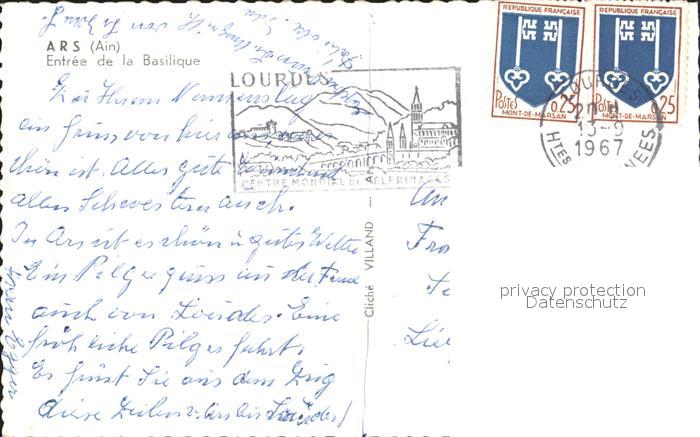 ARS (Ain)
Entrée de la Basilique
LOURDES
CENTRE MONDIAL DE PELERINAGES
REPUBLIQUE FRANÇAISE
POSTES 0,25
MONT-DE-MARSAN
REPUBLIQUE FRANÇAISE
POSTES 0,25
MONT-DE-MARSAN
LOURDES
13-9
1967
Htes PYRENEES
Zu Ihrem Namenstag
ein Gruss von hier
schön ist. Alles gute
allen Schwestern auch.
In Ars ist es schön u. gutes Wetter
Ein Pilgergruss aus der Ferne
auch von Lourdes. Eine
fröhliche Pilgerfahrt.
Es grüst Sie aus dem Zug
diese Zeilen v. Ars bis Lourdes!
Cliché VILLAND
An
Fro
Lie
privacy protection
Datenschutz